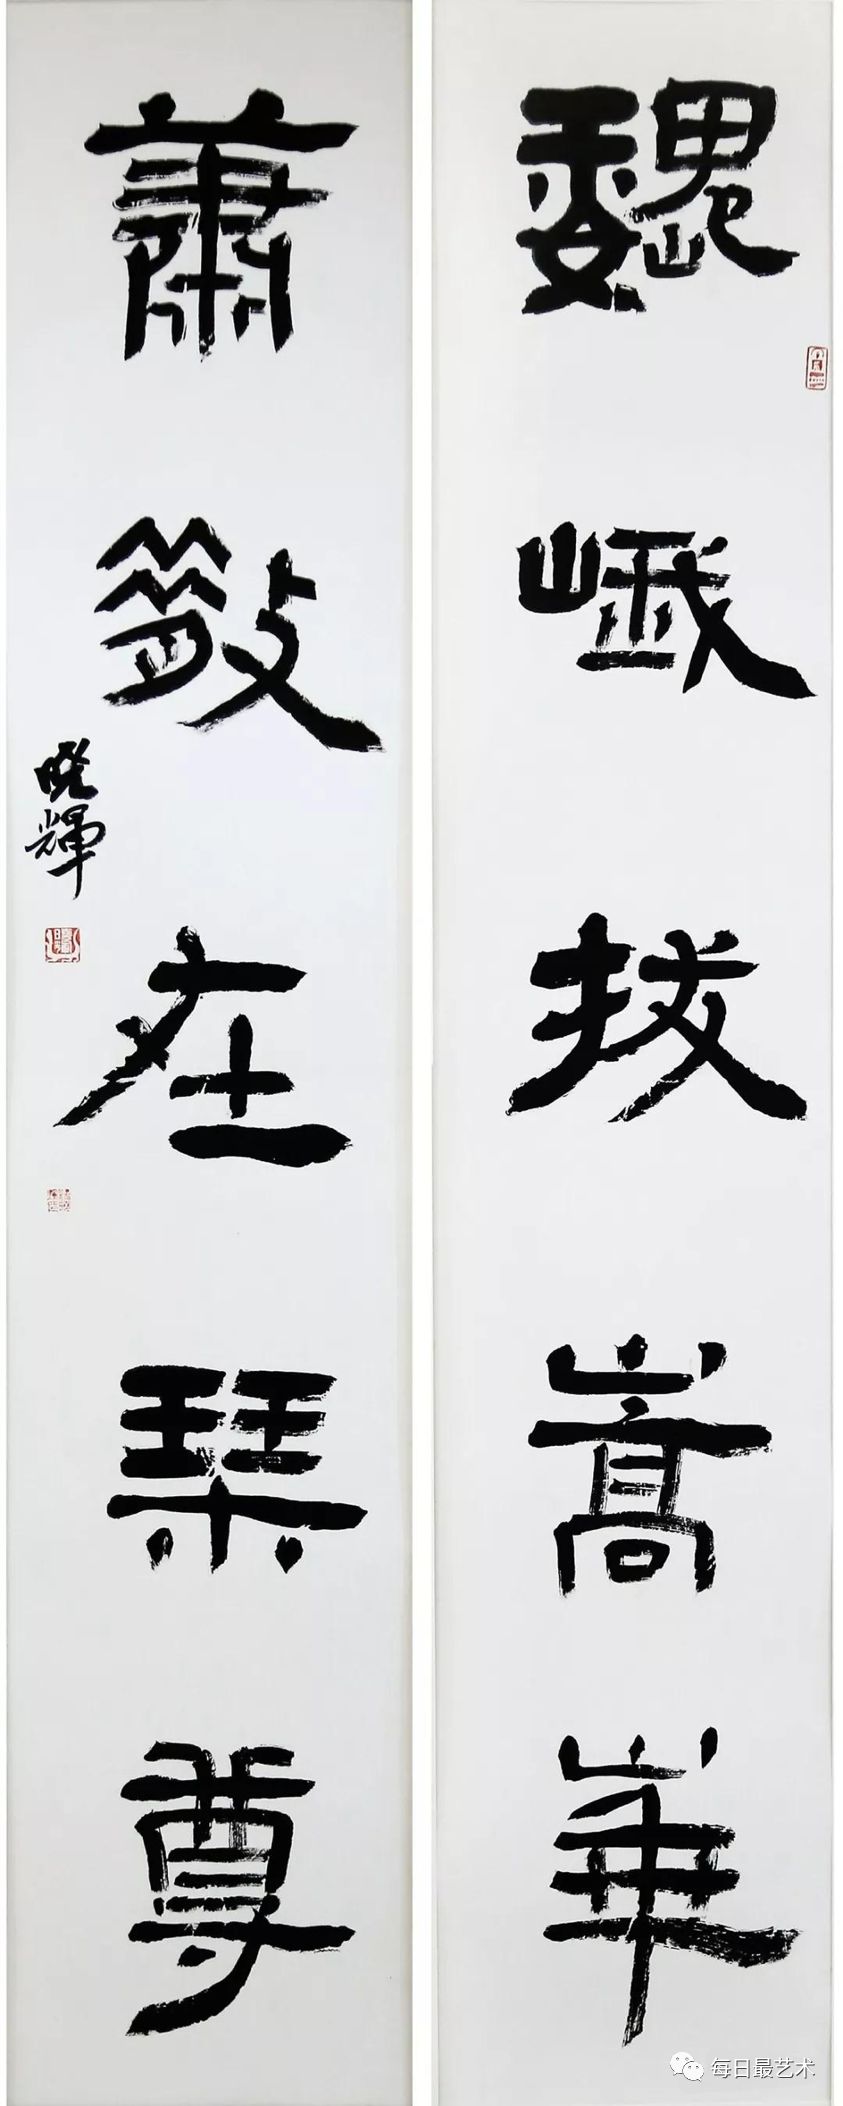 巍峨拔嵩崋
蕭散在琴尊
晓輝
每日最艺术